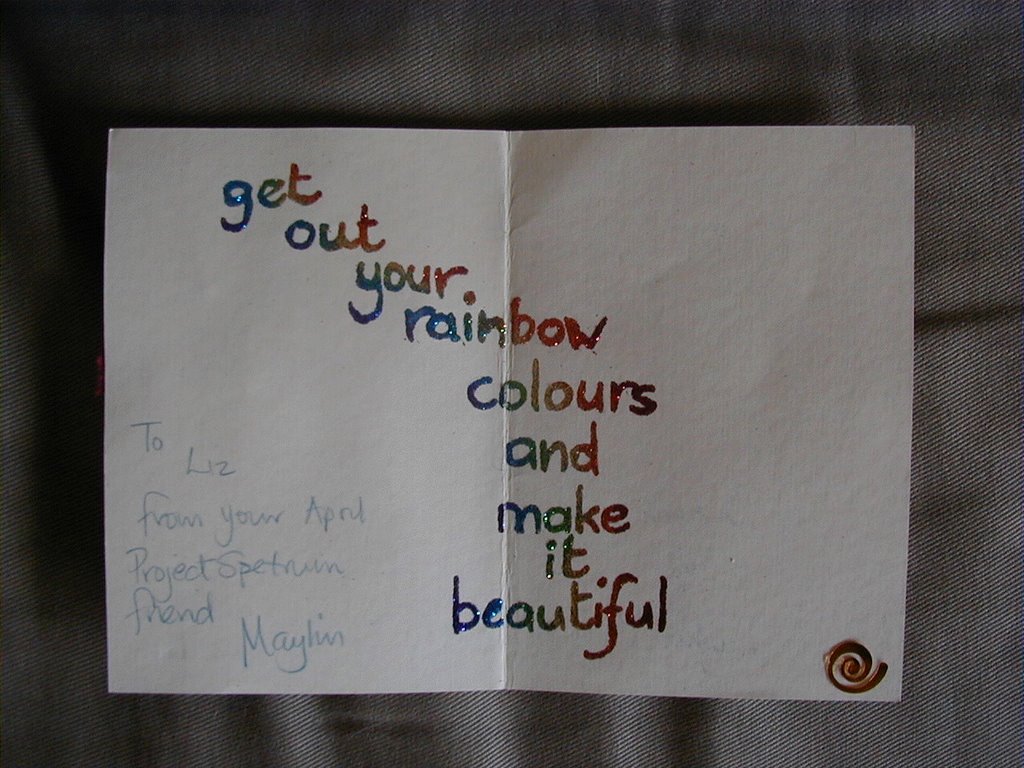 get
out
your.
rainbow
colours
and
make
it
beautiful
To
Liz
from your April
Project Spetrum
friend
Maylin